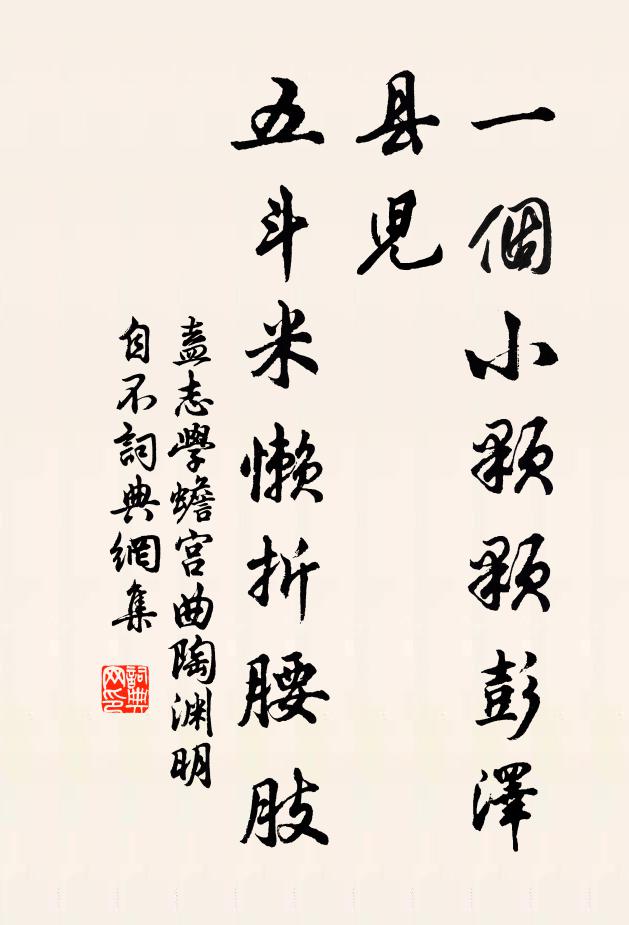 一個小顆顆彭澤
县児
五斗米懶折腰肢
盍志學蟾宫曲陶渊明
自不詞典網集
詞典
网印